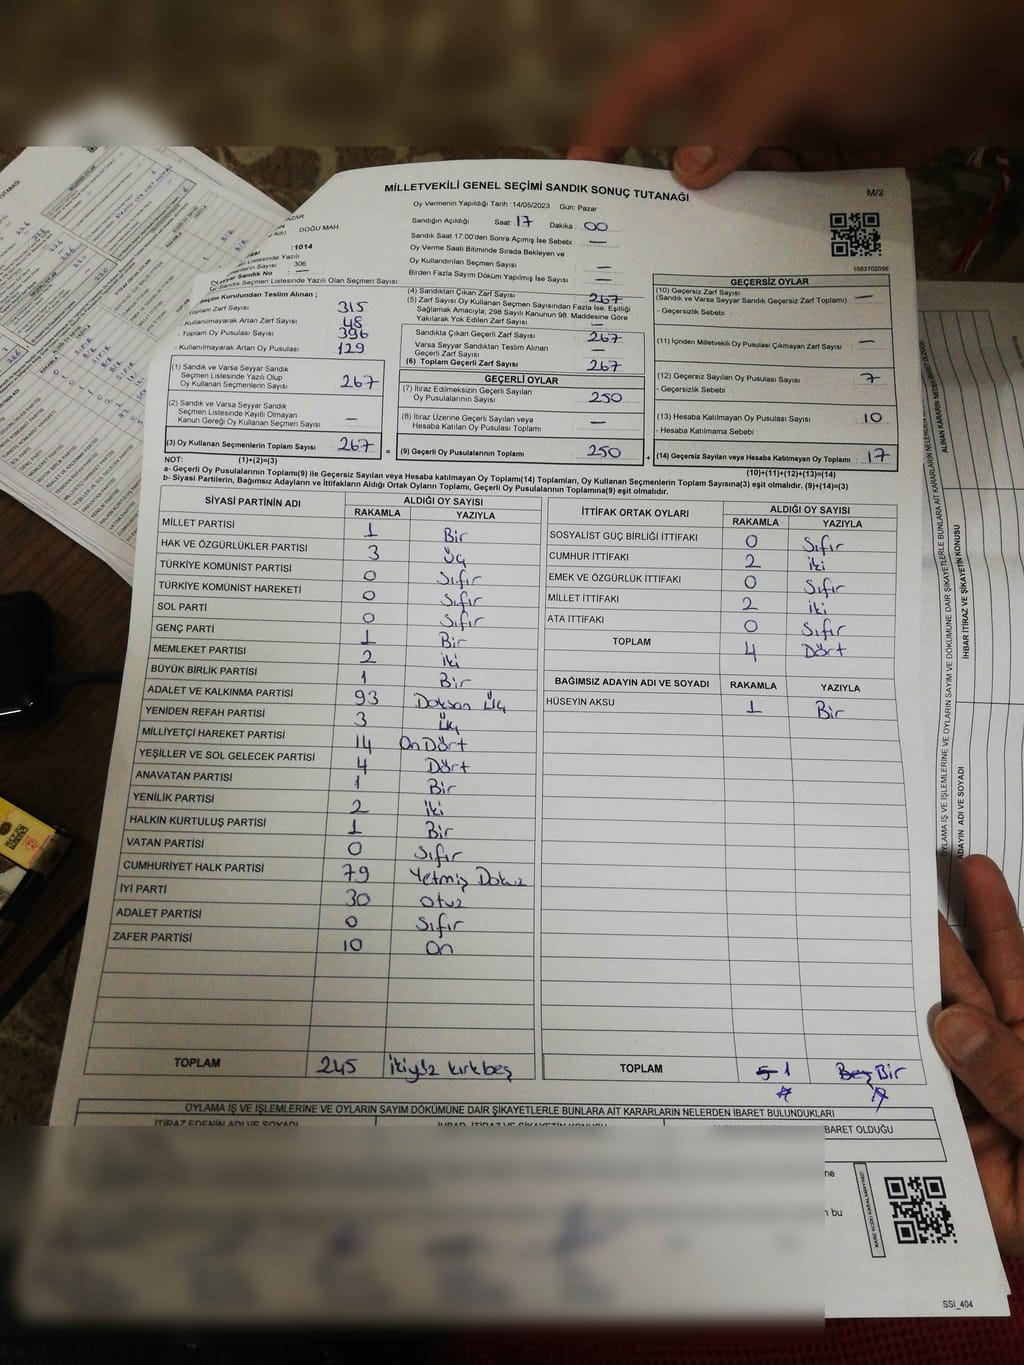 MİLLETVEKİLİ GENEL SEÇİMİ SANDIK SONUÇ TUTANAĞI
M/2
Oy Vermenin Yapıldığı Tarih :14/05/2023 Gün: Pazar
Sandığın Açıldığı Saat 17 Dakika : 00
Sandık Saat 17:00'den Sonra Açımış İse Sebebi : —
Oy Verme Saati Bitiminde Sırada Bekleyen ve
Oy Kullandırılan Seçmen Sayısı : —
Birden Fazla Sayım Döküm Yapılmış İse Sayısı : —
1063702056
DOĞU MAH
:1014
306
Sandık Seçmen Listesinde Yazılı Olan Seçmen Sayısı
Seçim Kurulundan Teslim Alınan ;
Toplam Zarf Sayısı 315
- Kullanılmayarak Artan Zarf Sayısı 48
- Toplam Oy Pusulası Sayısı 396
- Kullanılmayarak Artan Oy Pusulası 129
(1) Sandık ve Varsa Seyyar Sandık
Seçmen Listesinde Yazılı Olup
Oy Kullanan Seçmenlerin Sayısı 267
(2) Sandık ve Varsa Seyyar Sandık
Seçmen Listesinde Kayıtlı Olmayan
Kanun Gereği Oy Kullanan Seçmen Sayısı —
(3) Oy Kullanan Seçmenlerin Toplam Sayısı 267
(4) Sandıktan Çıkan Zarf Sayısı 267
(5) Zarf Sayısı Oy Kullanan Seçmen Sayısından Fazla İse, Eşitliği
Sağlamak Amacıyla, 298 Sayılı Kanunun 98. Maddesine Göre
Yakılarak Yok Edilen Zarf Sayısı —
Sandıkta Çıkan Geçerli Zarf Sayısı 267
Varsa Seyyar Sandıktan Teslim Alınan
Geçerli Zarf Sayısı —
(6) Toplam Geçerli Zarf Sayısı 267
GEÇERLİ OYLAR
(7) İtiraz Edilmeksizin Geçerli Sayılan
Oy Pusulalarının Sayısı 250
(8) İtiraz Üzerine Geçerli Sayılan veya
Hesaba Katılan Oy Pusulası Toplamı —
= (9) Geçerli Oy Pusulalarının Toplamı 250
GEÇERSİZ OYLAR
(10) Geçersiz Zarf Sayısı
(Sandık ve Varsa Seyyar Sandık Geçersiz Zarf Toplamı) —
- Geçersizlik Sebebi :
(11) İçinden Milletvekili Oy Pusulası Çıkmayan Zarf Sayısı —
(12) Geçersiz Sayılan Oy Pusulası Sayısı 7
- Geçersizlik Sebebi :
(13) Hesaba Katılmayan Oy Pusulası Sayısı 10
- Hesaba Katılmama Sebebi :
+ (14) Geçersiz Sayılan veya Hesaba Katılmayan Oy Toplamı 17
NOT: (1)+(2)=(3)
(10)+(11)+(12)+(13)=(14)
a- Geçerli Oy Pusulalarının Toplamı(9) ile Geçersiz Sayılan veya Hesaba katılmayan Oy Toplamı(14) Toplamları, Oy Kullanan Seçmenlerin Toplam Sayısına(3) eşit olmalıdır. (9)+(14)=(3)
b- Siyasi Partilerin, Bağımsız Adayların ve İttifakların Aldığı Ortak Oyların Toplamı, Geçerli Oy Pusulalarının Toplamına(9) eşit olmalıdır.
SİYASİ PARTİNİN ADI ALDIĞI OY SAYISI
RAKAMLA YAZIYLA
MİLLET PARTİSİ 1 Bir
HAK VE ÖZGÜRLÜKLER PARTİSİ 3 Üç
TÜRKİYE KOMÜNİST PARTİSİ 0 Sıfır
TÜRKİYE KOMÜNİST HAREKETİ 0 Sıfır
SOL PARTİ 0 Sıfır
GENÇ PARTİ 1 Bir
MEMLEKET PARTİSİ 2 iki
BÜYÜK BİRLİK PARTİSİ 1 Bir
ADALET VE KALKINMA PARTİSİ 93 Doksan Üç
YENİDEN REFAH PARTİSİ 3 Üç
MİLLİYETÇİ HAREKET PARTİSİ 14 On Dört
YEŞİLLER VE SOL GELECEK PARTİSİ 4 Dört
ANAVATAN PARTİSİ 1 Bir
YENİLİK PARTİSİ 2 iki
HALKIN KURTULUŞ PARTİSİ 1 Bir
VATAN PARTİSİ 0 Sıfır
CUMHURİYET HALK PARTİSİ 79 Yetmiş Dokuz
İYİ PARTİ 30 otuz
ADALET PARTİSİ 0 Sıfır
ZAFER PARTİSİ 10 On
TOPLAM 245 ikiyüz kırkbeş
İTTİFAK ORTAK OYLARI ALDIĞI OY SAYISI
RAKAMLA YAZIYLA
SOSYALİST GÜÇ BİRLİĞİ İTTİFAKI 0 Sıfır
CUMHUR İTTİFAKI 2 iki
EMEK VE ÖZGÜRLÜK İTTİFAKI 0 Sıfır
MİLLET İTTİFAKI 2 iki
ATA İTTİFAKI 0 Sıfır
TOPLAM 4 Dört
BAĞIMSIZ ADAYIN ADI VE SOYADI RAKAMLA YAZIYLA
HÜSEYİN AKSU 1 Bir
TOPLAM 5 1 Beş Bir
OYLAMA İŞ VE İŞLEMLERİNE VE OYLARIN SAYIM DÖKÜMÜNE DAİR ŞİKAYETLERLE BUNLARA AİT KARARLARIN NELERDEN İBARET BULUNDUKLARI
İTİRAZ EDENİN ADI VE SOYADI
İHBAR, İTİRAZ VE ŞİKAYETİN KONUSU
BARET OLDUĞU
SSİ_404
OYLAMA İŞ VE İŞLEMLERİNE VE OYLARIN SAYIM VE DÖKÜMÜNE DAİR ŞİKAYETLERLE BUNLARA AİT KARARLARIN NELERDEN
ADAYIN ADI VE SOYADI
İHBAR İTİRAZ VE ŞİKAYETİN KONUSU